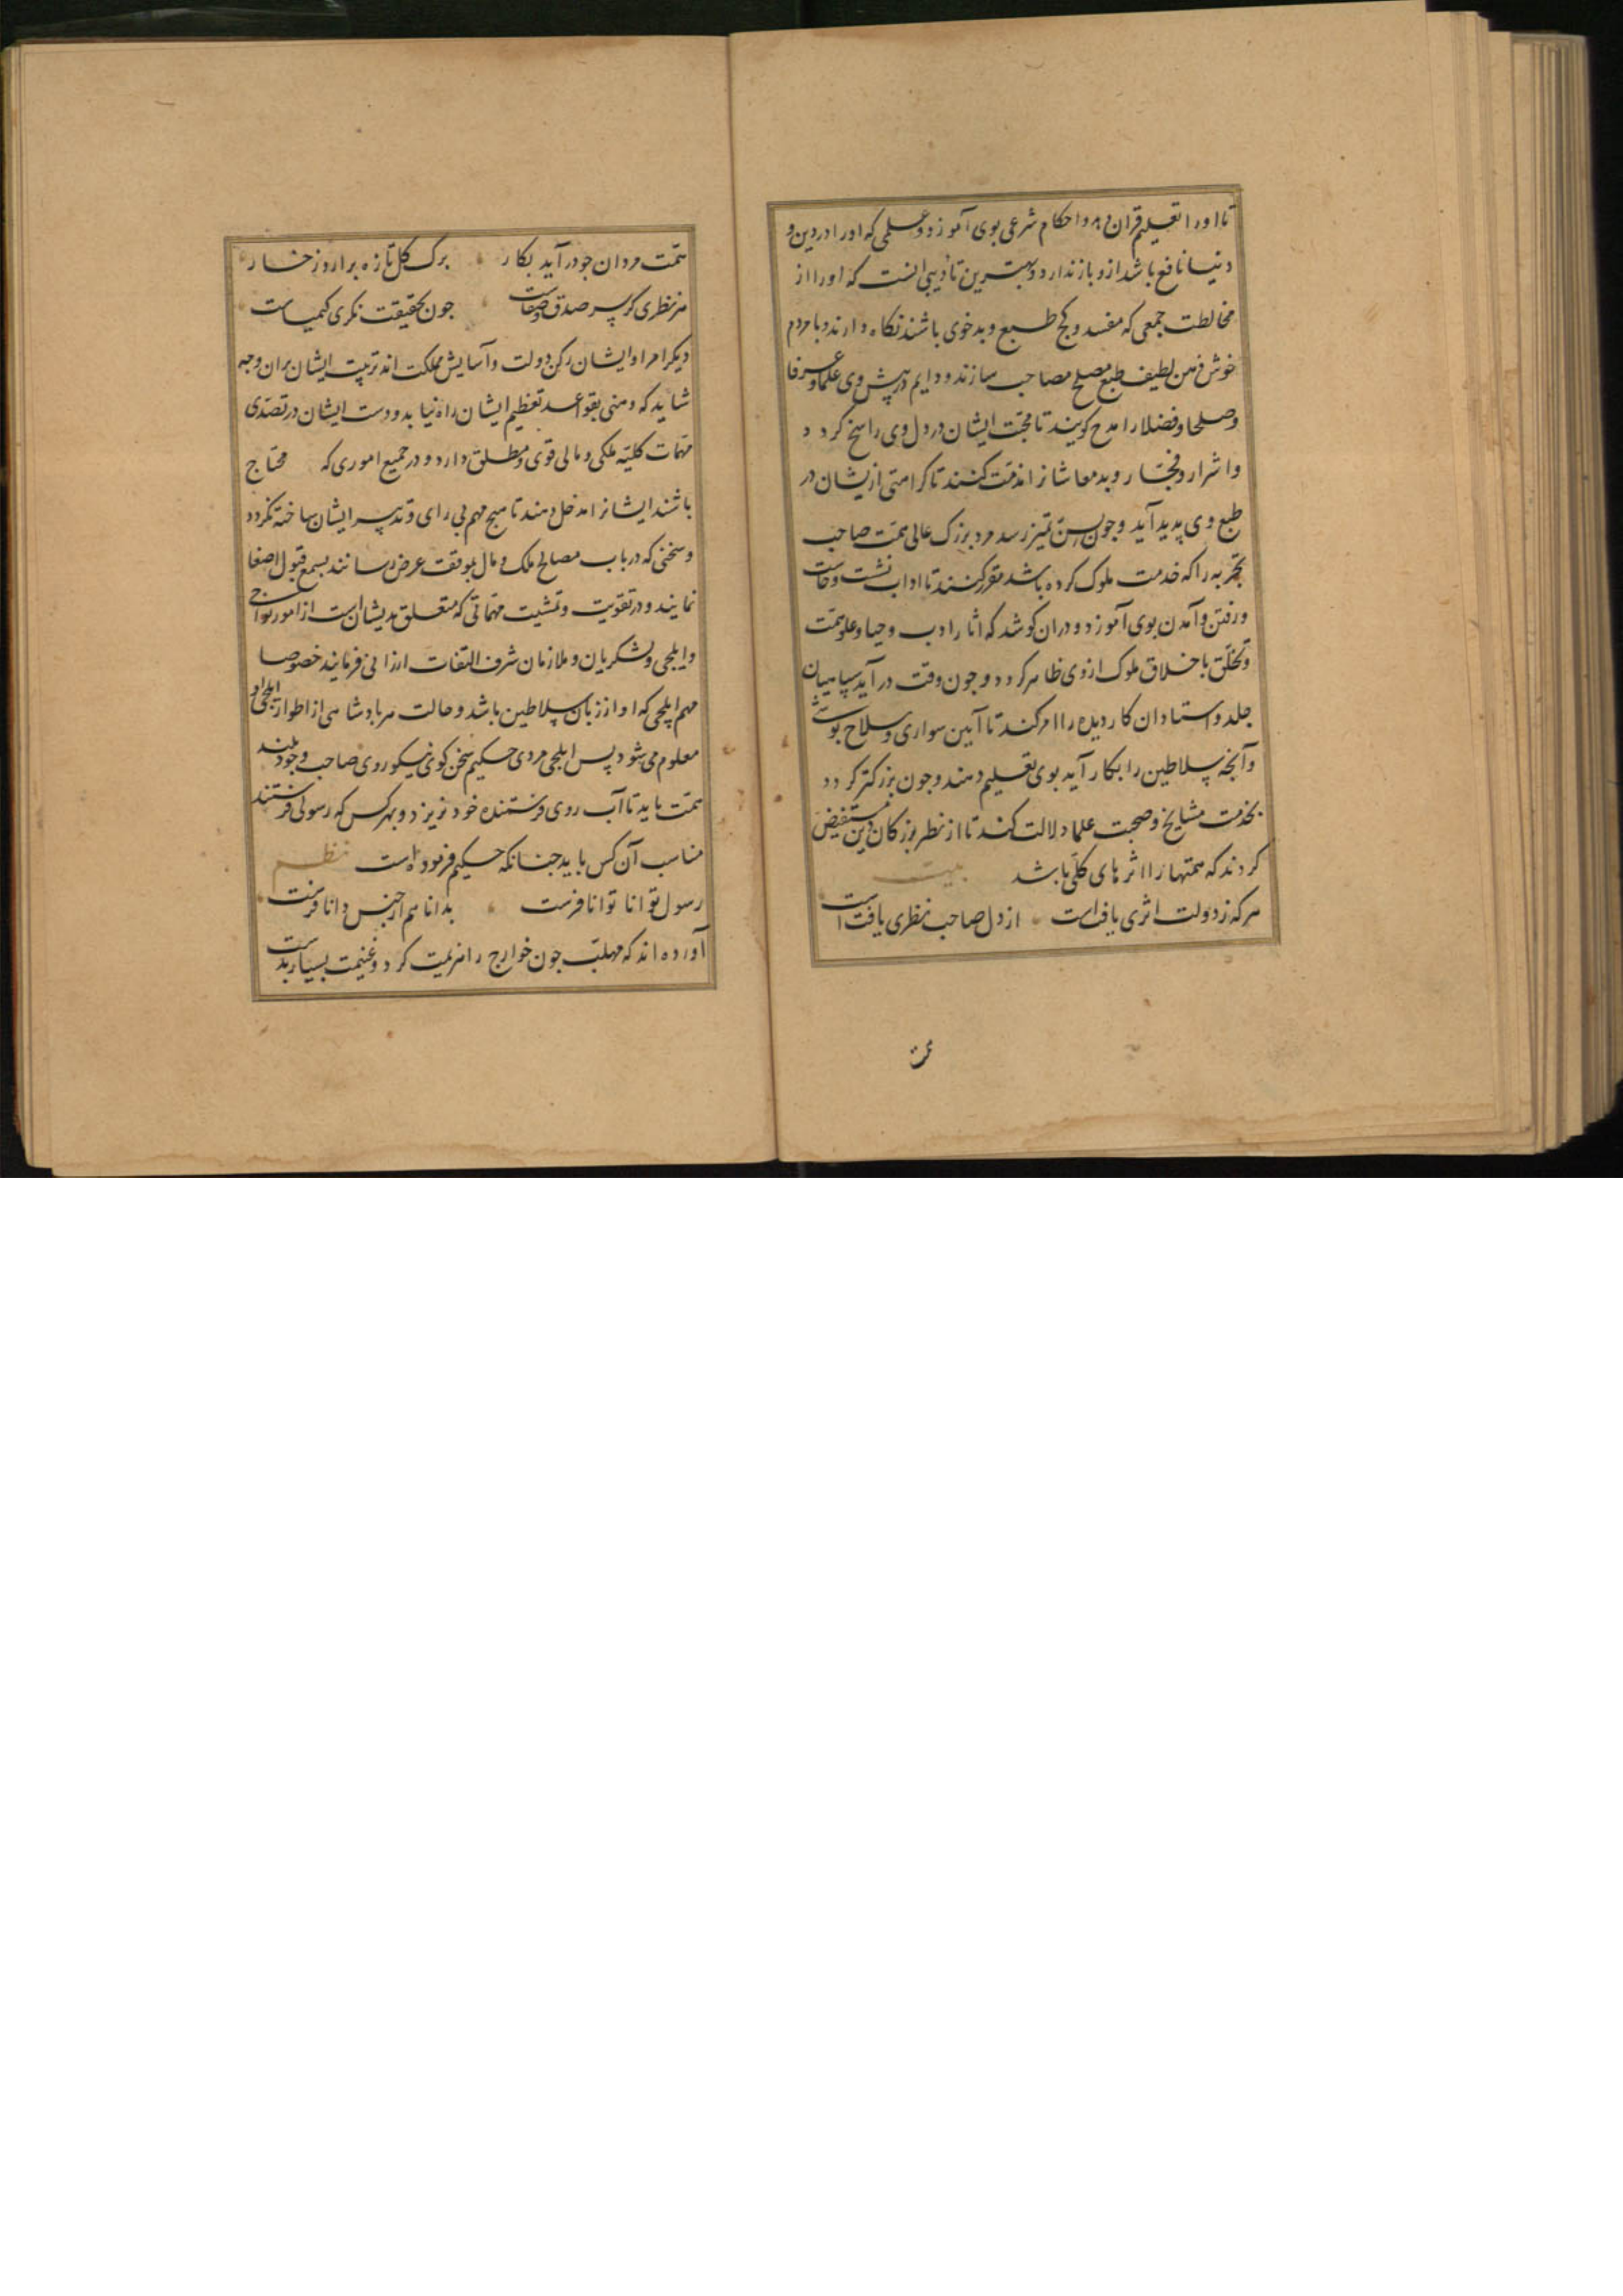 تا او را تعلیم قران دهد و احکام شرعی بوی آموزد و علمی که او را در دین و
دنیا نافع باشد ازو باز ندارد و بهترین تأدیبی انست که او را از
مخالطت جمعی که مفسد و کج طبع و بدخوی باشند نکاه دارند و با مردم
خوش ذهن لطیف طبع مصلح مصاحب سازند و دایم در پیش وی علما و عرفا
و صلحا و فضلا را مدح کویند تا محبت ایشان در دل وی راسخ کردد و
و اشرار و فجّار و بدمعاشانرا مذمّت کنند تا کراهتی ازیشان در
طبع وی پدید آید و جون بسنّ تمیز رسد مرد بزرک عالی همّت صاحب
تجربه را که خدمت ملوک کرده باشد مقرر کنند تا اداب نشست و خاست
و رفتن و آمدن بوی آموزد و دران کوشد که اثار ادب و حیا و علو همّت
و تخلّق باخلاق ملوک از وی ظاهر کردد و جون وقت در آید سپاهیان
جلد و استادان کاردیده را امر کند تا آیین سواری و سلاح پوشی
و آنجه سلاطین را بکار آید بوی تعلیم دهند و جون بزرکتر کردد
بخدمت مشایخ و صحبت علما دلالت کند تا از نظر بزرکان دین مستفیض
کردند که همتها را اثرهای کلّی باشد بیت
هر که ز دولت اثری یافتست از دل صاحب نظری یافت است
همّت مردان جو در آید بکار برک کل تازه برارد ز خار
هر نظری کز سر صدق و صفاست جون بحقیقت نکری کیمیاست
دیکر امرا و ایشان رکن دولت و آسایش مملکت اند تربیت ایشان بران وجه
شاید که وهنی بقواعد تعظیم ایشان راه نیابد و دست ایشان در تصدّی
مهمّات کلیّه ملکی و مالی قوی و مطلق دارد و در جمیع اموری که محتاج
باشند ایشانرا مدخل دهند تا هیج مهم بی رای و تدبیر ایشان ساخته نکردد
و سخنی که در باب مصالح ملک و مال بموقف عرض رسانند بسمع قبول اصغا
نمایند و در تقویت و تمشیت مهمّاتی که متعلق بدیشان است از امور نواحی
و ایلجی و لشکریان و ملازمان شرف التفات ارزانی فرمایند خصوصا
مهم ایلجی که او از زبان سلاطین باشد و حالت هر بادشاهی از اطوار ایلجی او
معلوم می شود پس ایلجی مردی حکیم سخن کوی نیکو روی صاحب وجود بلند
همّت باید تا آب روی فرستنده خود نریزد و بهر کس که رسولی فرستند
مناسب آن کس باید جنانکه حکیم فرموده است نظم
رسول توانا توانا فرست بدانا هم از جنس دانا فرست
آورده اند که مهلّب جون خوارج را هزیمت کرد و غنیمت بسیار بدست
همّت